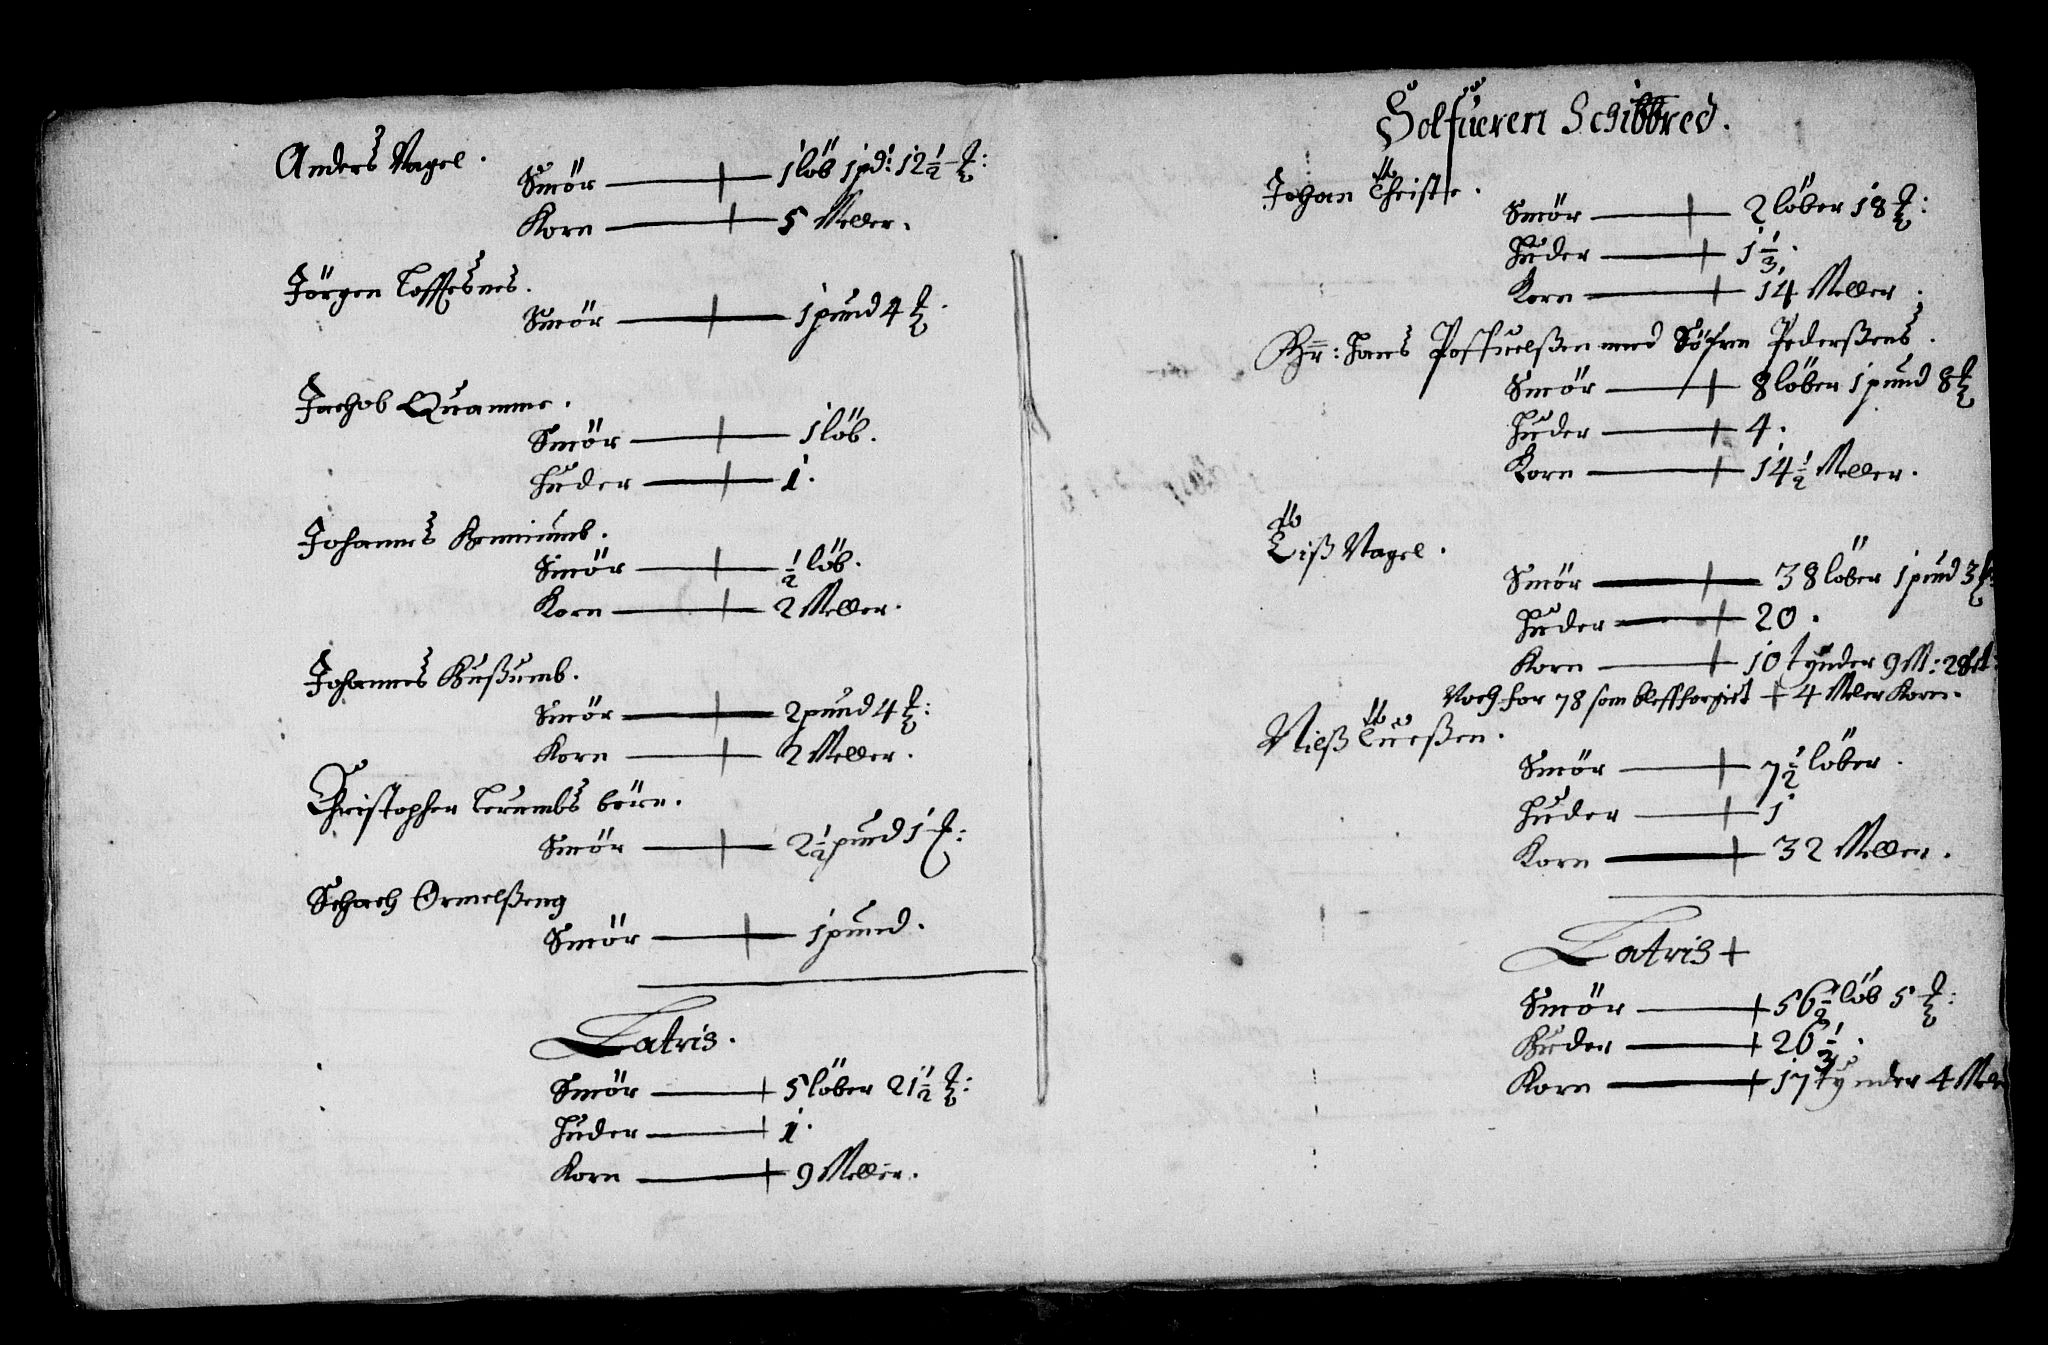 Anders Nagel.
Smör — 1 löb 1 pd: 12 1/2 ℔:
Korn — 5 Meller.
Jörgen Toffesnes.
Smör — 1 pund 4 ℔.
Jachob Quamme.
Smör — 1 löb.
Huder — 1.
Johannes
Smör — 1/2 löb.
Korn — 2 Meller.
Johannes Bußumb.
Smör — 2 pund 4 ℔:
Korn — 2 Meller.
Christopher Lerumbs börn.
Smör — 2 1/2 pund 1 ℔:
Schach Ormelßeng
Smör — 1 pund.
Latris.
Smör — 5 löber 21 1/2 ℔:
Huder — 1.
Korn — 9 Meller.
Solfueren Schibbred.
Johan Christe.
Smör — 2 löber 18 ℔:
Huder — 1 1/3.
Korn — 14 Meller.
Hr: Hans med Söfren Pederßens.
Smör — 8 löber 1 pund 8 ℔
Huder — 4.
Korn — 14 1/2 Meller.
Liß Nagel.
Smör — 38 löber 1 pund 3 ℔:
Huder — 20.
Korn — 10 tynder 9 M: 28
Noch for 78 som bleff forgiet + 4 Meler Korn.
Nielß
Smör — 7 1/2 löber.
Huder — 1
Korn — 32 Meller.
Latris +
Smör — 56 1/2 löb 5 ℔:
Huder — 26 1/3.
Korn — 17 tynder 4 Mel